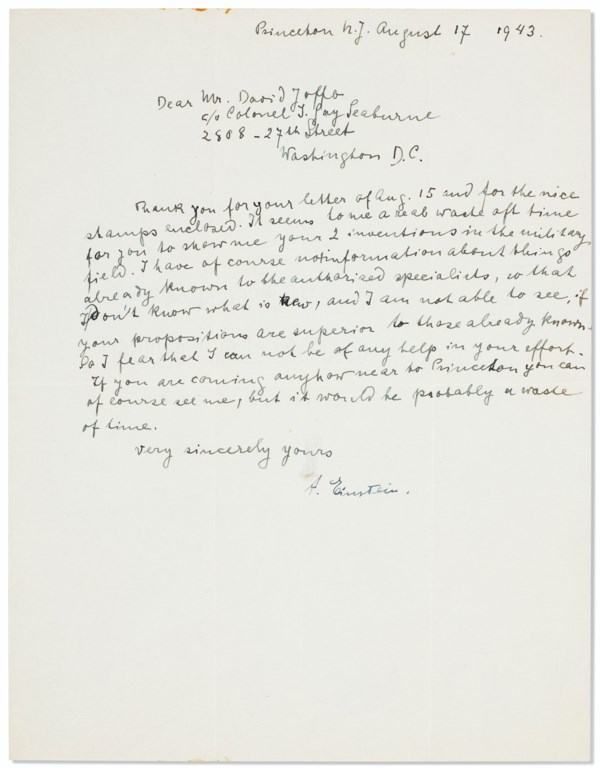 Princeton N.J. August 17 1943.
Dear Mr. David Joffo
c/o Colonel J. Gay Seaburne
2808 - 27th Street
Washington D.C.
Thank you for your letter of Aug. 15 and for the nice
stamps enclosed. It seems to me a real waste oft time
for you to show me your 2 inventions in the military
field. I have of course no information about things
already known to the authorised specialists, so that
I don't know what is new, and I am not able to see, if
your propositions are superior to those already known.
So I fear that I can not be of any help in your effort.
If you are coming anyhow near to Princeton you can
of course see me, but it would be probably a waste
of time.
very sincerely yours
A. Einstein.